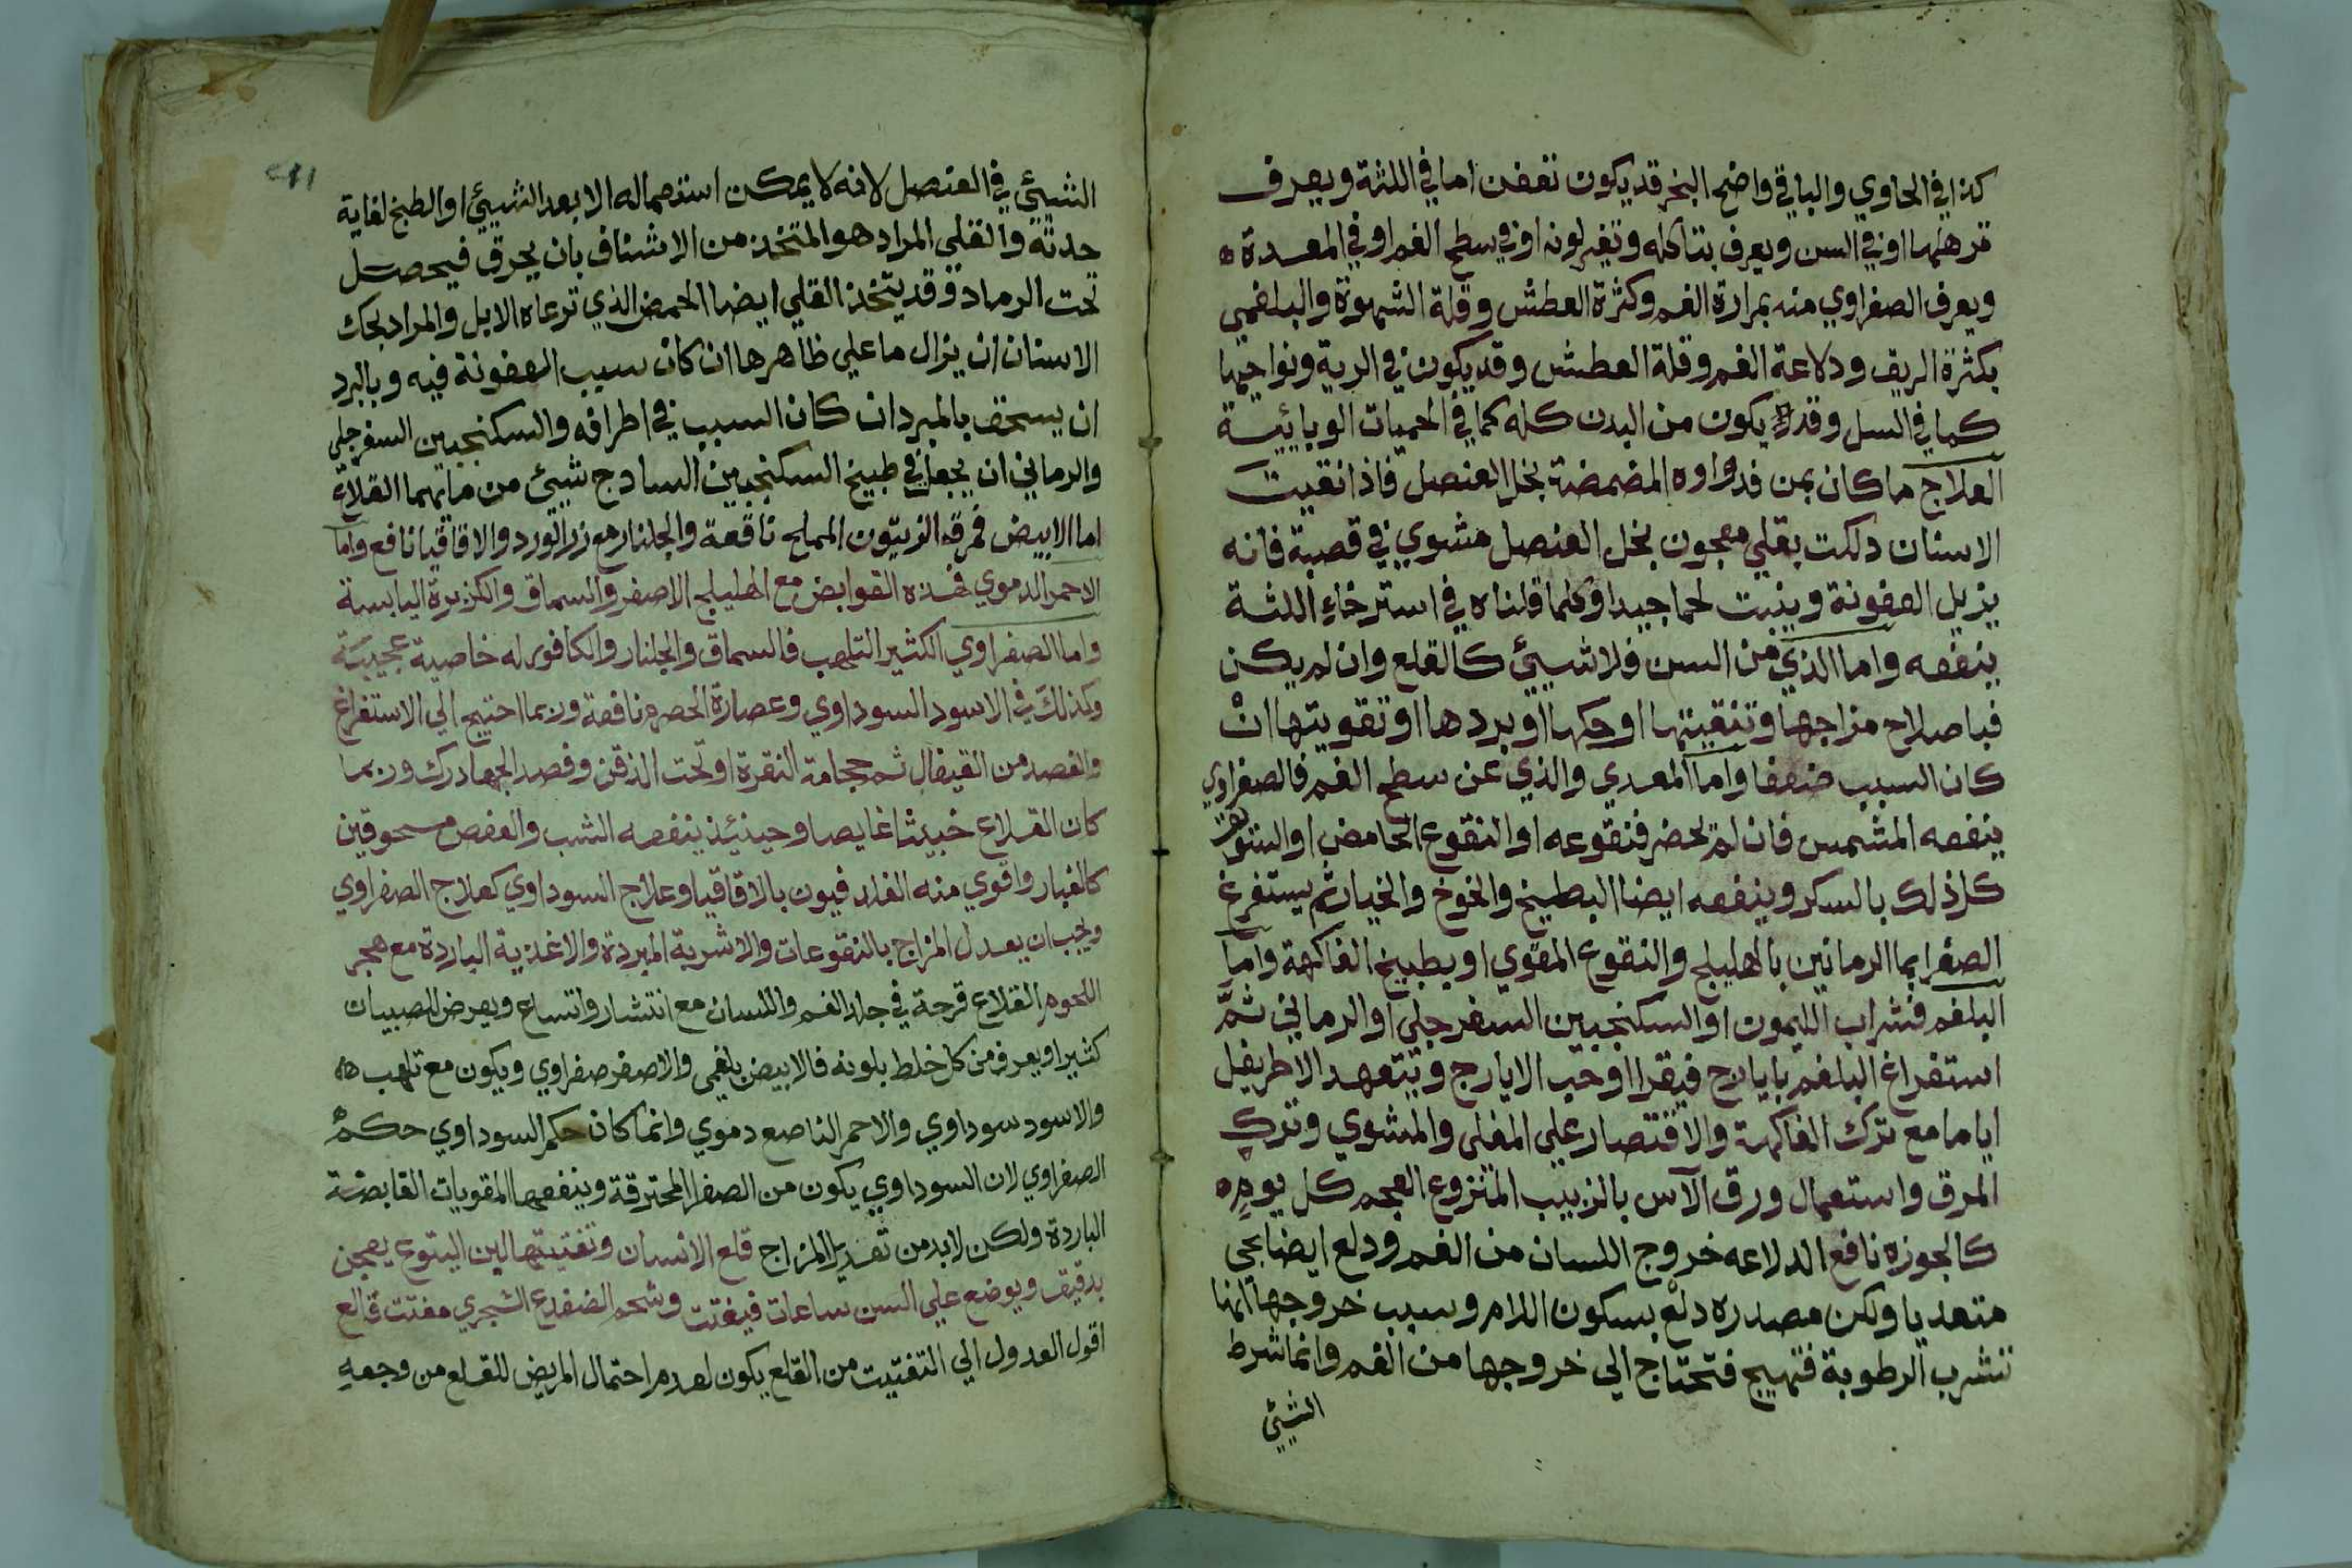 كذا في الحاوي والباقي واضح البخر قد يكون تعفن اما في اللثة ويعرف
ترهلها او في السن ويعرف بتاكله وتغير لونه او في سطح الفم او في المعدة ه
ويعرف الصفراوي منه بمرارة الفم وكثرة العطش وقلة الشهوة والبلغمي
بكثرة الريق ودلاعة الفم وقلة العطش وقد يكون في الرية ونواحيها
كما في السل وقد يكون من البدن كله كما في الحميات الوبائية
العلاج ما كان بمن فدواوه المضمضة بخل العنصل فاذا نقيت
الاسنان دلكت بقلي معجون بخل العنصل مشوي في قصبة فانه
يزيل العفونة وينبت لحما جيدا وكلما قلناه في استرخاء اللثة
ينفعه واما الذي من السن فلا شيئ كالقلع وان لم يكن
فباصلاح مزاجها وتنقيتها او حكها او بردها او تقويتها ان
كان السبب ضعفا واما المعدي والذي عن سطح الفم فالصفراوي
ينفعه المشمس فان لم يحضر فنقوعه او النقوع الحامض او السويق
كل ذلك بالسكر وينفعه ايضا البطيخ والخوخ والخيار ثم يستفرغ
الصفرا بما الرمانين بالهليلج والنقوع المقوي او بطبيخ الفاكهة واما
البلغم فشراب الليمون او السكنجبين السفرجلي او الرماني ثم
استفراغ البلغم بايارج فيقرا او حب الايارج ويتعهد الاطريفل
اياما مع ترك الفاكهة والاقتصار على المقلي والمشوي وترك
المرق واستعمال ورق الآس بالزبيب المنزوع العجم كل يوم ه
كالجوزه نافع الدلاعه خروج اللسان من الفم ودلع ايضا يجي
متعديا ولكن مصدره دلع بسكون اللام وسبب خروجها انها
تشرب الرطوبة فتهيج فتحتاج الي خروجها من الفم وانما شرط
الشيئ
الشيئ في العنصل لانه لا يمكن استعماله الا بعد الشيئ او الطبخ لغاية
حدته والقلي المراد هو المتخذ من الاشناف بان يحرق فيحصل
تحت الرماد وقد يتخذ القلي ايضا الحمض الذي ترعاه الابل والمراد بحك
الاسنان ان يزال ما على ظاهرها ان كان سبب العفونة فيه وبالبرد
ان يسحق بالمبرد ان كان السبب في اطرافه والسكنجبين السفرجلي
والرماني ان يجعل في طبيخ السكنجبين السادج شيئ من مائهما القلاع
اما الابيض فمرقه الزيتون المملح نافعة والجلنار مع زر الورد والاقاقيا نافع واما
الاحمر الدموي فهذه القوابض مع الهليلج الاصفر والسماق والكزبرة اليابسة
واما الصفراوي الكثير التلهب فالسماق والجلنار والكافور له خاصية عجيبة
وكذلك في الاسود السوداوي وعصارة الحصرم نافعة وربما احتيج الى الاستفراغ
والفصد من القيفال ثم حجامة النقرة او تحت الذقن وفصد الجهارك وربما
كان القلاع خبيثا غايصا وحينئذ ينفعه الشب والعفص مسحوقين
كالغبار واقوي منه الفلدفيون بالاقاقيا وعلاج السوداوي كعلاج الصفراوي
ويجب ان يعدل المزاج بالنقوعات والاشربة المبردة والاغذية الباردة مع هجر
اللحوم القلاع قرحة في جلد الفم واللسان مع انتشار واتساع ويعرض للصبيان
كثيرا ويعرف من كل خلط بلونه فالابيض بلغمي والاصفر صفراوي ويكون مع تلهب ه
والاسود سوداوي والاحمر الناصع دموي وانما كان حكم السوداوي حكم
الصفراوي لان السوداوي يكون من الصفرا المحترقة وينفعها المقويات القابضة
الباردة ولكن لابد من تعديل المزاج قلع الاسنان وتفتيتها لبن اليتوع يعجن
بدقيق ويوضع علي السن ساعات فيفتت وشحم الضفدع الشجري مفتت قالع
اقول العدول الي التفتيت من القلع يكون لعدم احتمال المريض للقلع من وجعه